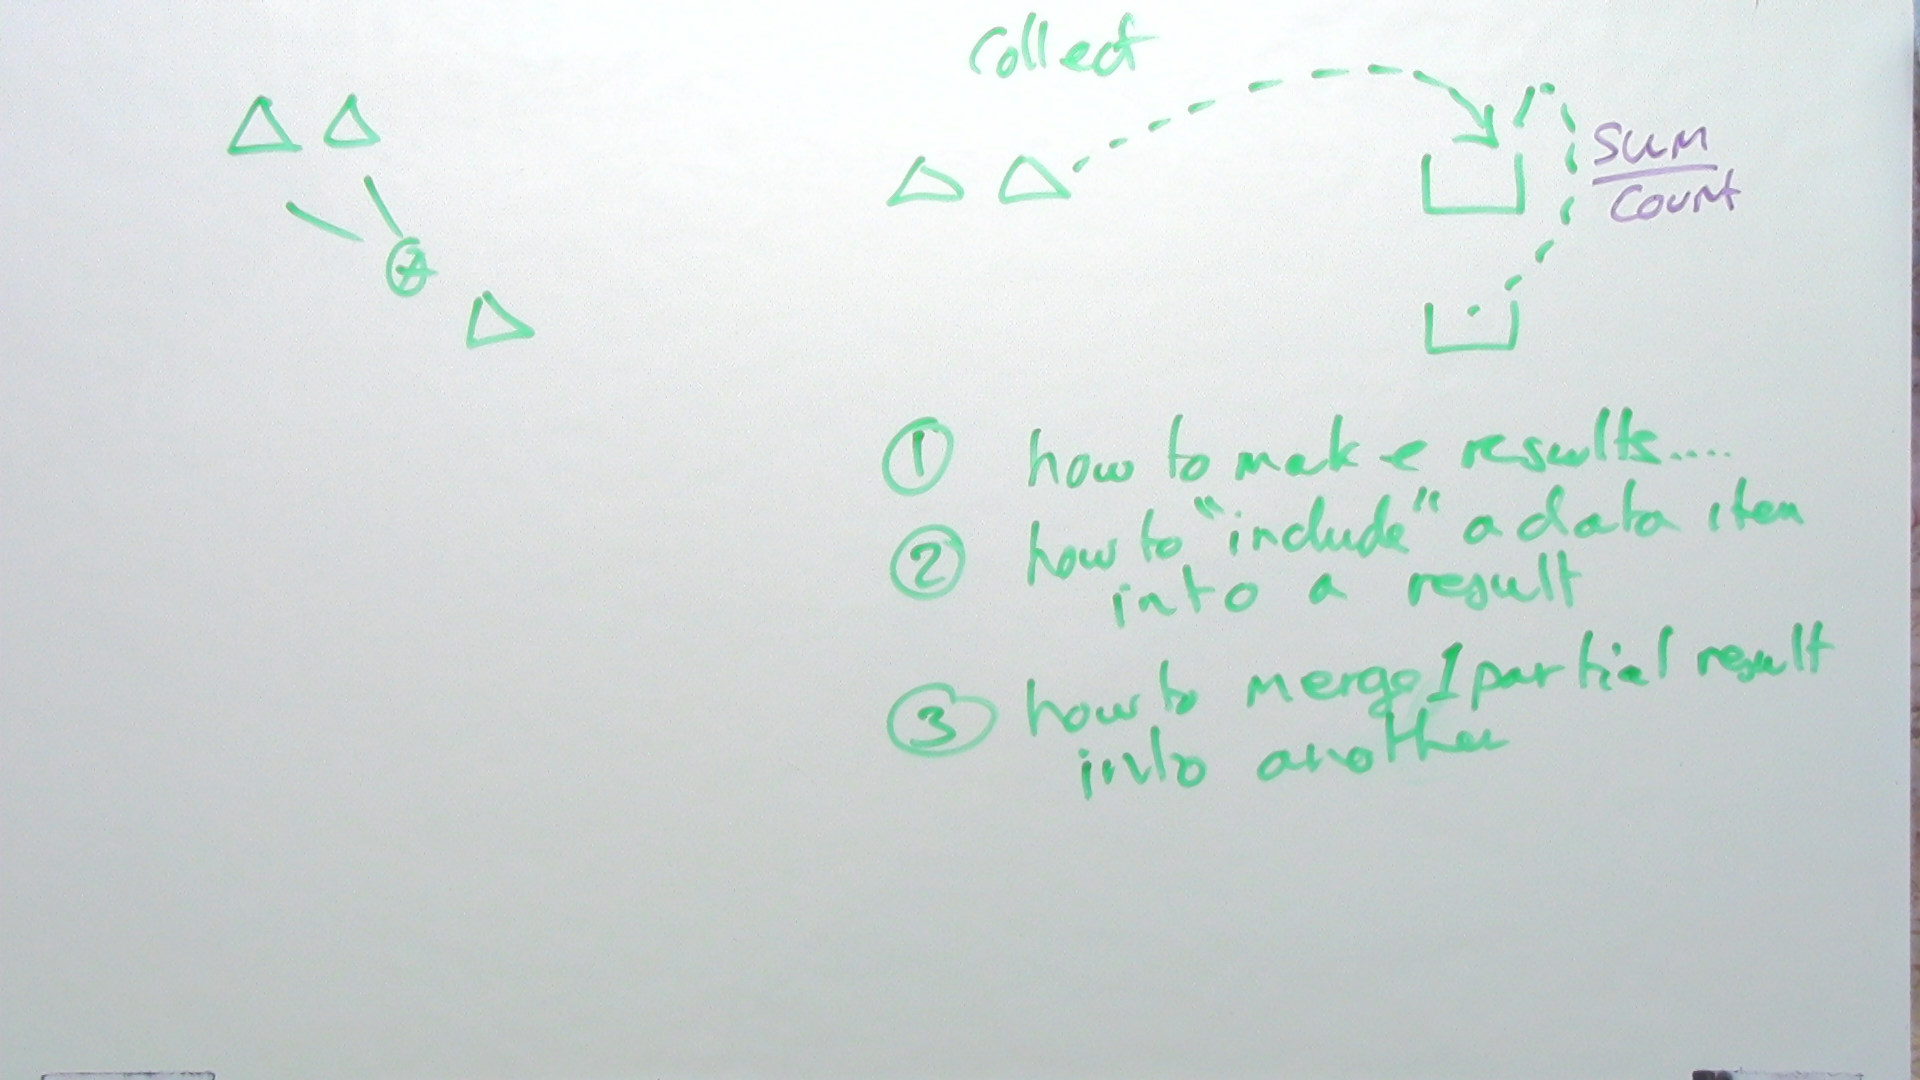 Collect
SUM
COUNT
① how to make results....
② how to "include" a data item
into a result
③ how to merge 1 partial result
into another